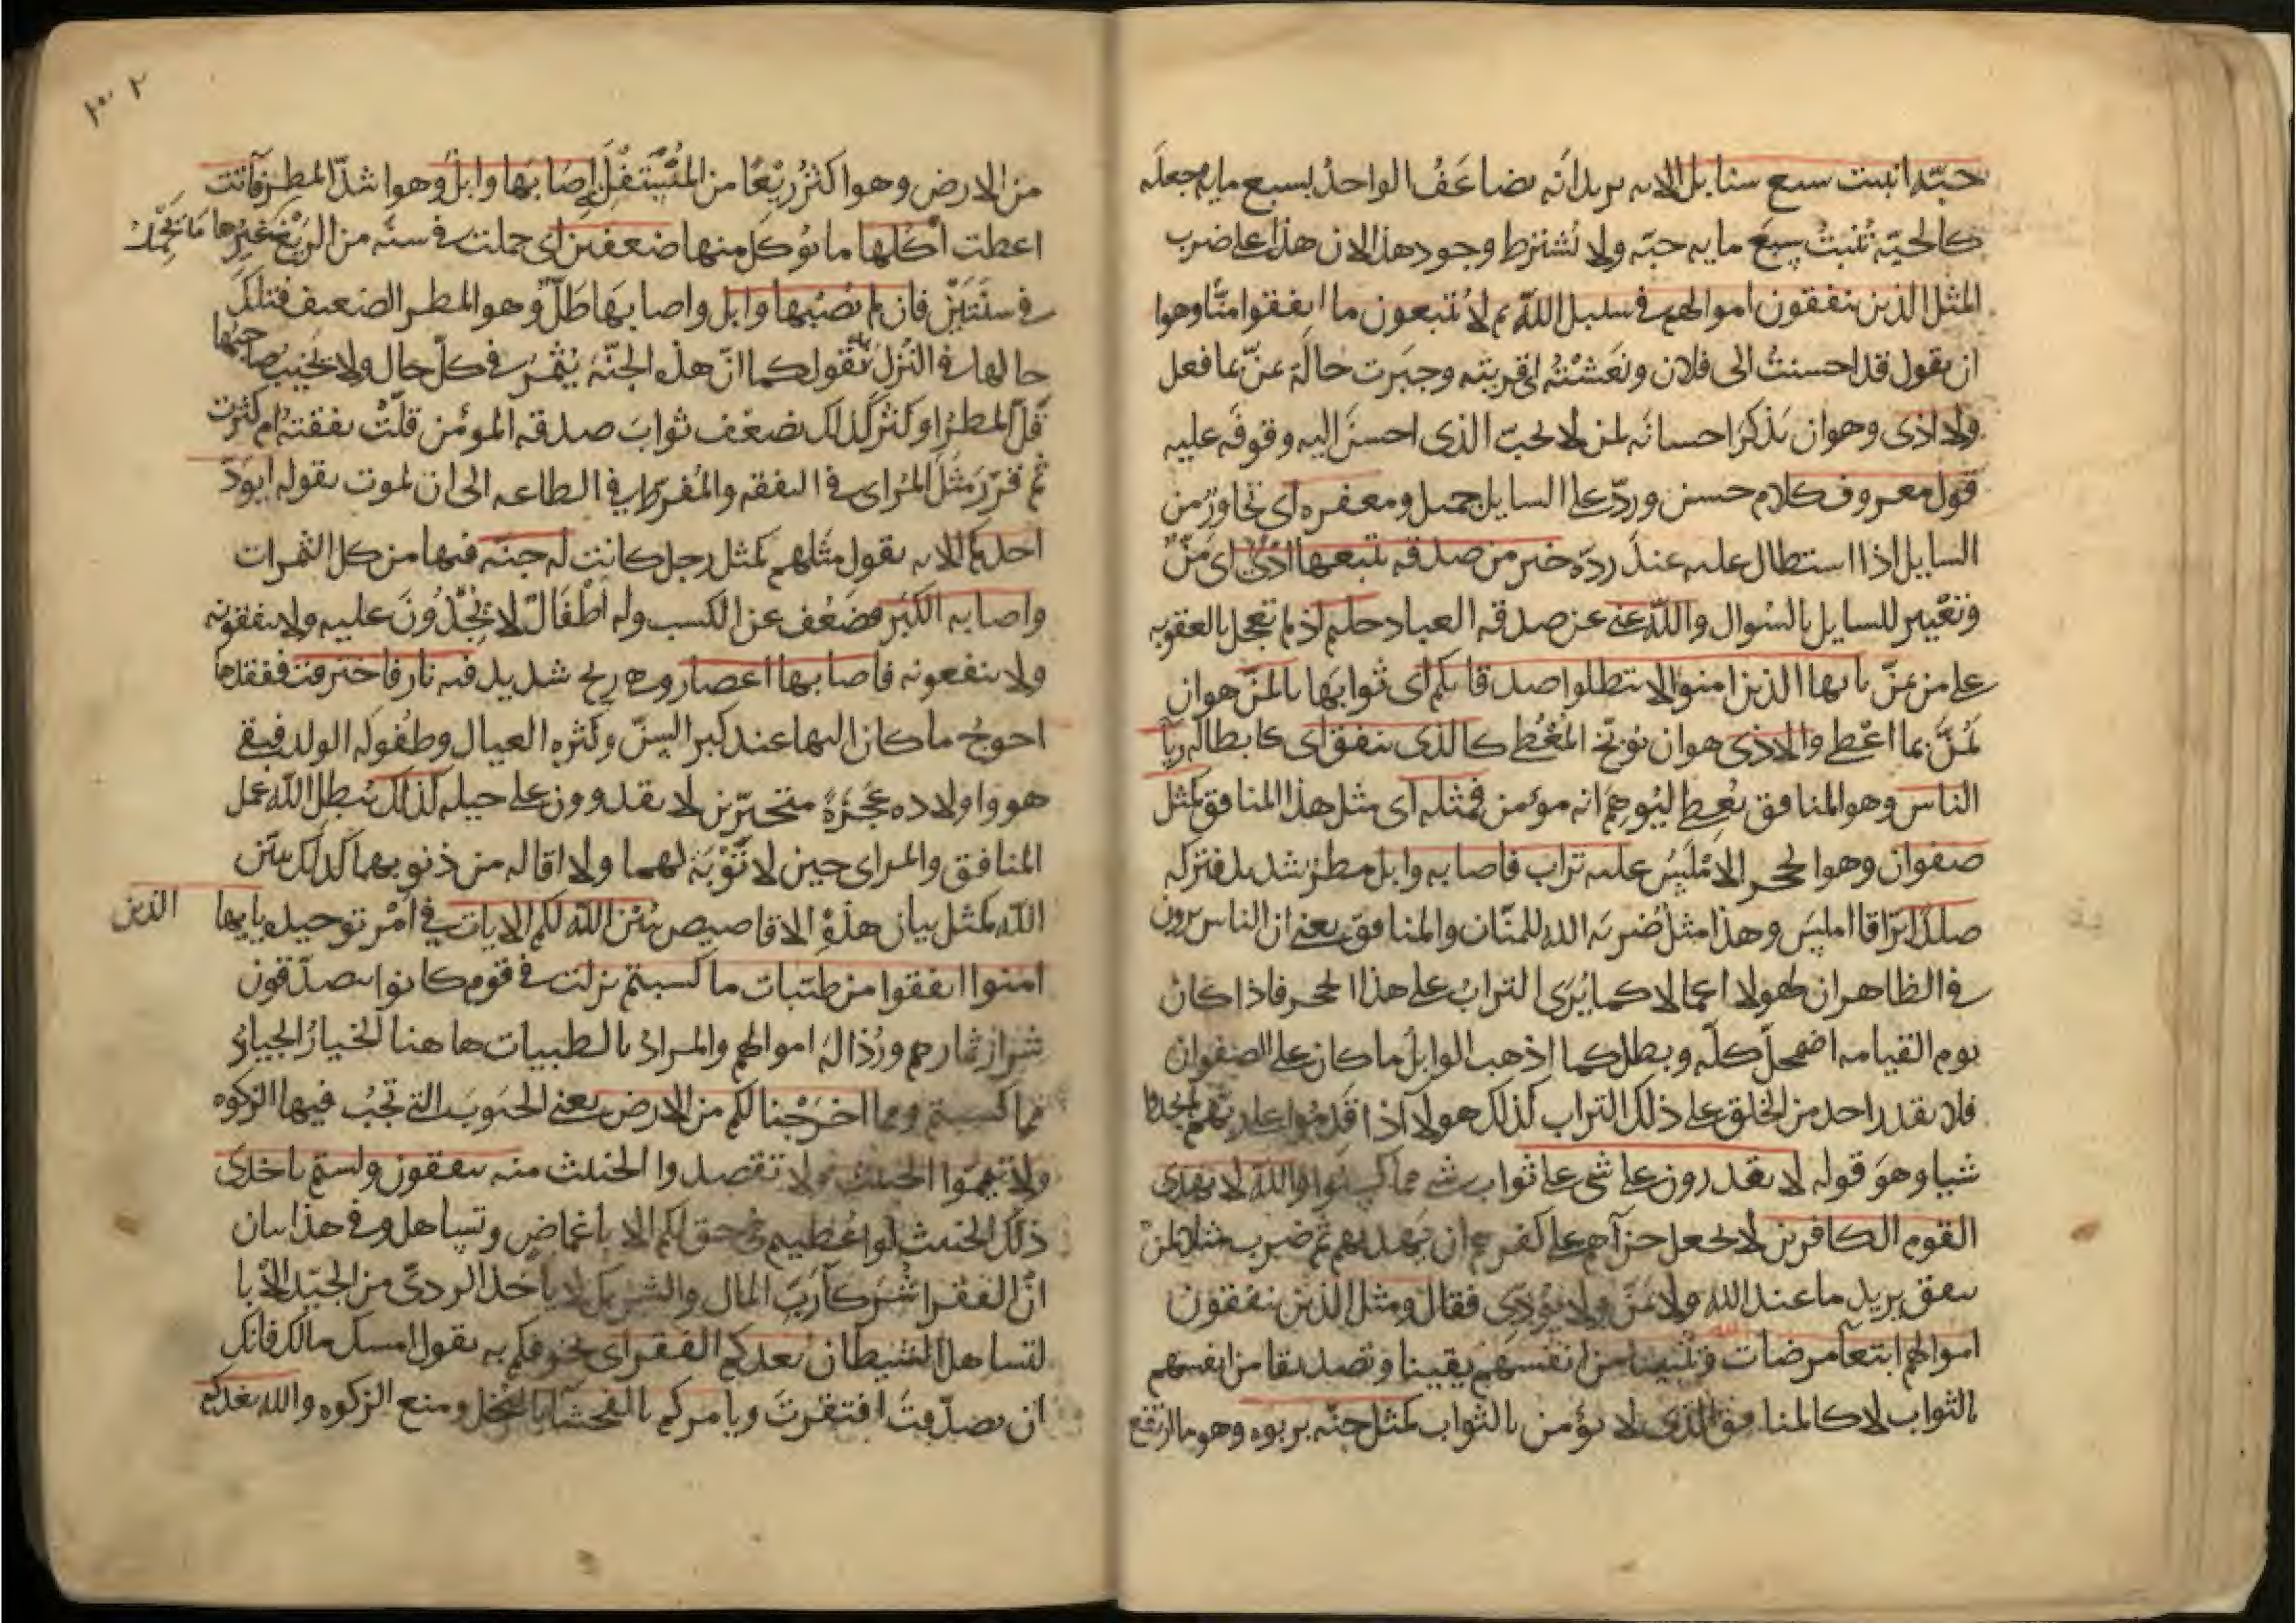 حبّة انبتت سبع سنابل الايه يريد انّه يضاعَفُ الواحدُ بسبع مايه وجعله
كالحبّة تُنبتُ سبعَ مايه حبّه ولا تُشترط وجود هذا لان هذا على ضرب
المثل الذين ينفقون اموالهم في سبيل اللّه ثم لا يُتبعون ما انفقوا منًّا وهوا
ان يقول قد احسنتُ الى فلان ونَعَشْتُه وجبَرت حالَه يمنّ بما فعل
ولا اذى وهو ان يذكرَ احسانَه لمن لا يحبّ الذى احسنَ اليه وقوفَه عليه
قول معروف كلام حسن وردّ على السايل جميل ومغفره اى تجاوزُ من
السايل اذا استطال عليه عندَ ردّه خير من صدقه يتبعها اذًى اى مَنٌّ
وتعْيير للسايل بالسُوال واللّه غنى عن صدقه العباد حليم اذ لم تعجل بالعقوبه
على من يمنّ يايها الذين امنوا لا تبطلوا صدقاتكم اى ثوابَها بالمنّ هو ان
يَمُنَّ بما اعْطى والاذى هو ان يوبّخ المُعْطى كالذى ينفق اى كابطاله ريآ
الناس وهو المنافق يُعطى ليُوهِمَ انه مومن فمثله اى مثل هذا المنافق كمثل
صفوان وهوا الحجر الامْلَسُ عليه تراب فاصابه وابل مطرٌ شديد فتركه
صلدًا برّاقا املسَ وهذا مثلٌ ضربَه الله للمنّان والمنافق يعنى ان الناس يرون
فى الظاهر ان لهولا اعمالا كما يُرَى الترابُ على هذا الحجر فاذا كان
يوم القيامه اضمحلّ كلّه وبطل كما اذهب الوابلُ ما كان على الصفوان
فلا يقدر احد من الخلق على ذلك التراب كذلك هولا اذا قدموا على ربّهم لم يجدوا
شيا وهوَ قوله لا يقدرون على شى على ثواب شى مما كسبوا واللّه لا يهدى
القوم الكافرين لا يجعل جزآهم على كفرهم ان يهديهم ثم ضرب مثلا لمن
ينفق يريد ما عند اللّه ولا يمنّ ولا يؤدى فقال ومثل الذين ينفقون
اموالهم ابتغآ مرضات اللّه وتثبيتا من انفسهم يقينا وتصديقا من انفسهم
بالثواب لا كالمنافق الذى لا يؤمن بالثواب كمثل جنّه بربوه وهو ما ارتفع
من الارض وهوا كثرُ رَيْعًا من المُسْتفل اصَابَها وابلٌ وهوا شدّ المطر فآتت
اعطت اُكُلها ما يوكل منها ضعفين اى حملت فى سنه من الرَيْع ما يَحْمِلُ غيرها
فى سنَتَيْن فان لم يصُبها وابل واصابَها طَلٌّ وهو المطر الضعيف فتلكَ
حالها فى النُزل يقول كما انّ هذه الجنّه يُثمرُ فى كلّ حال ولا يخيب صاحبُها
قلّ المطرُ او كثر كذلك يضعّف ثوابَ صدقه المومن قلّتْ نفقتهُ ام كثرت
ثم قرّرَ مَثَلَ المُراى فى النفقه والمُفرّط فى الطاعه الى ان يموت بقوله ايودّ
احدكم الايه يقول مثلهم كمثل رجل كانت له جنّه فيها من كل الثمرات
واصابه الكبَر فضَعُف عن الكسب وله اطْفَالٌ لا يُجْدُونَ عليه ولا ينفقونه
ولا ينفعونه فاصابها اعصار وهى ريح شديد فيه نار فاحترقت ففقدها
احوجُ ما كان اليها عند كبر السنّ وكثره العيال وطفوله الولد فبقى
هو واولاده عَجَزةً متحيّرين لا يقدرون على حيله كذلك يُبطل اللّه عمل
المنافق والمراى حين لا تَوْبَةَ لهما ولا اقاله من ذنوبهما كذلك يبيّن
اللّه كمثل بيان هذِه الاقاصيص يُبيّن اللّه لكم الايات فى اَمْرِ توحيده يايها الذين
امنوا انفقوا من طيّبات ما كسبتم نزلت فى قوم كانوا يتصدّقون
بشرار ثمارهم ورُذالةِ اموالهم والمرادُ بالطيبات هاهنا الخيارُ الجيادُ
مما كسبتم ومما اخرَجْنا لكم من الارض يعنى الحبوبَ التى تَجبُ فيها الزكوه
ولا تيمّموا الخبيث ولا تقصدوا الخبيث منه تنفقون ولستم باخذى
ذلك الخبيث لو اُعْطيتم فى حق لكم الا باغماض وتساهل وفى هذا بيان
انّ الفقرا شُرَكآ رَبّ المال والشريك لا ياخذ الردىّ من الجيّد الّا با
لتساهل الشيطان يعدكم الفقر اى يخوفكم به يقول امسك مالك فانك
ان تصدّقتَ افتقرتَ ويامركم بالفحشآ بالبخل ومنع الزكوه واللّه يعدكم